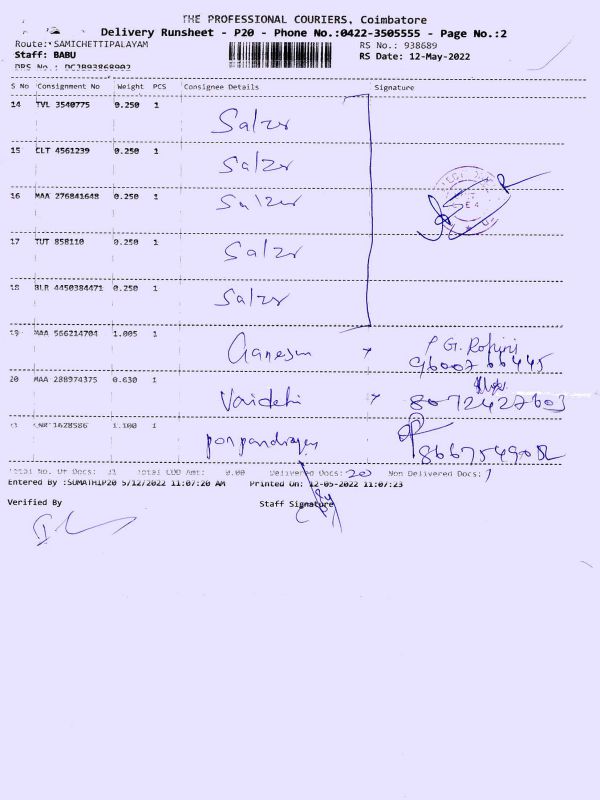 THE PROFESSIONAL COURIERS, Coimbatore
Delivery Runsheet - P20 - Phone No.:0422-3505555 - Page No.:2
Route: SAMICHETTIPALAYAM RS No.: 938689
Staff: BABU RS Date: 12-May-2022
DRS No.: DCJB93868902
S No Consignment No Weight PCS Consignee Details Signature
14 TVL 3540775 0.250 1 Salzer
15 CLT 4561239 0.250 1 Salzer
16 MAA 276841648 0.250 1 Salzer
17 TUT 858110 0.250 1 Salzer
18 BLR 4450384471 0.250 1 Salzer
19 MAA 566214704 1.005 1 Ganesan P G. Rohini
9600766445
20 MAA 288974375 0.630 1 Vaidehi
8072427603
1628586 1.100 1
8667549082
Total No. Of Docs: 21 Total COD Amt: 0.00 Delivered Docs: 20 Non Delivered Docs: 1
Entered By :SUMATHIP20 5/12/2022 11:07:20 AM Printed On: 12-05-2022 11:07:23
Verified By Staff Signature